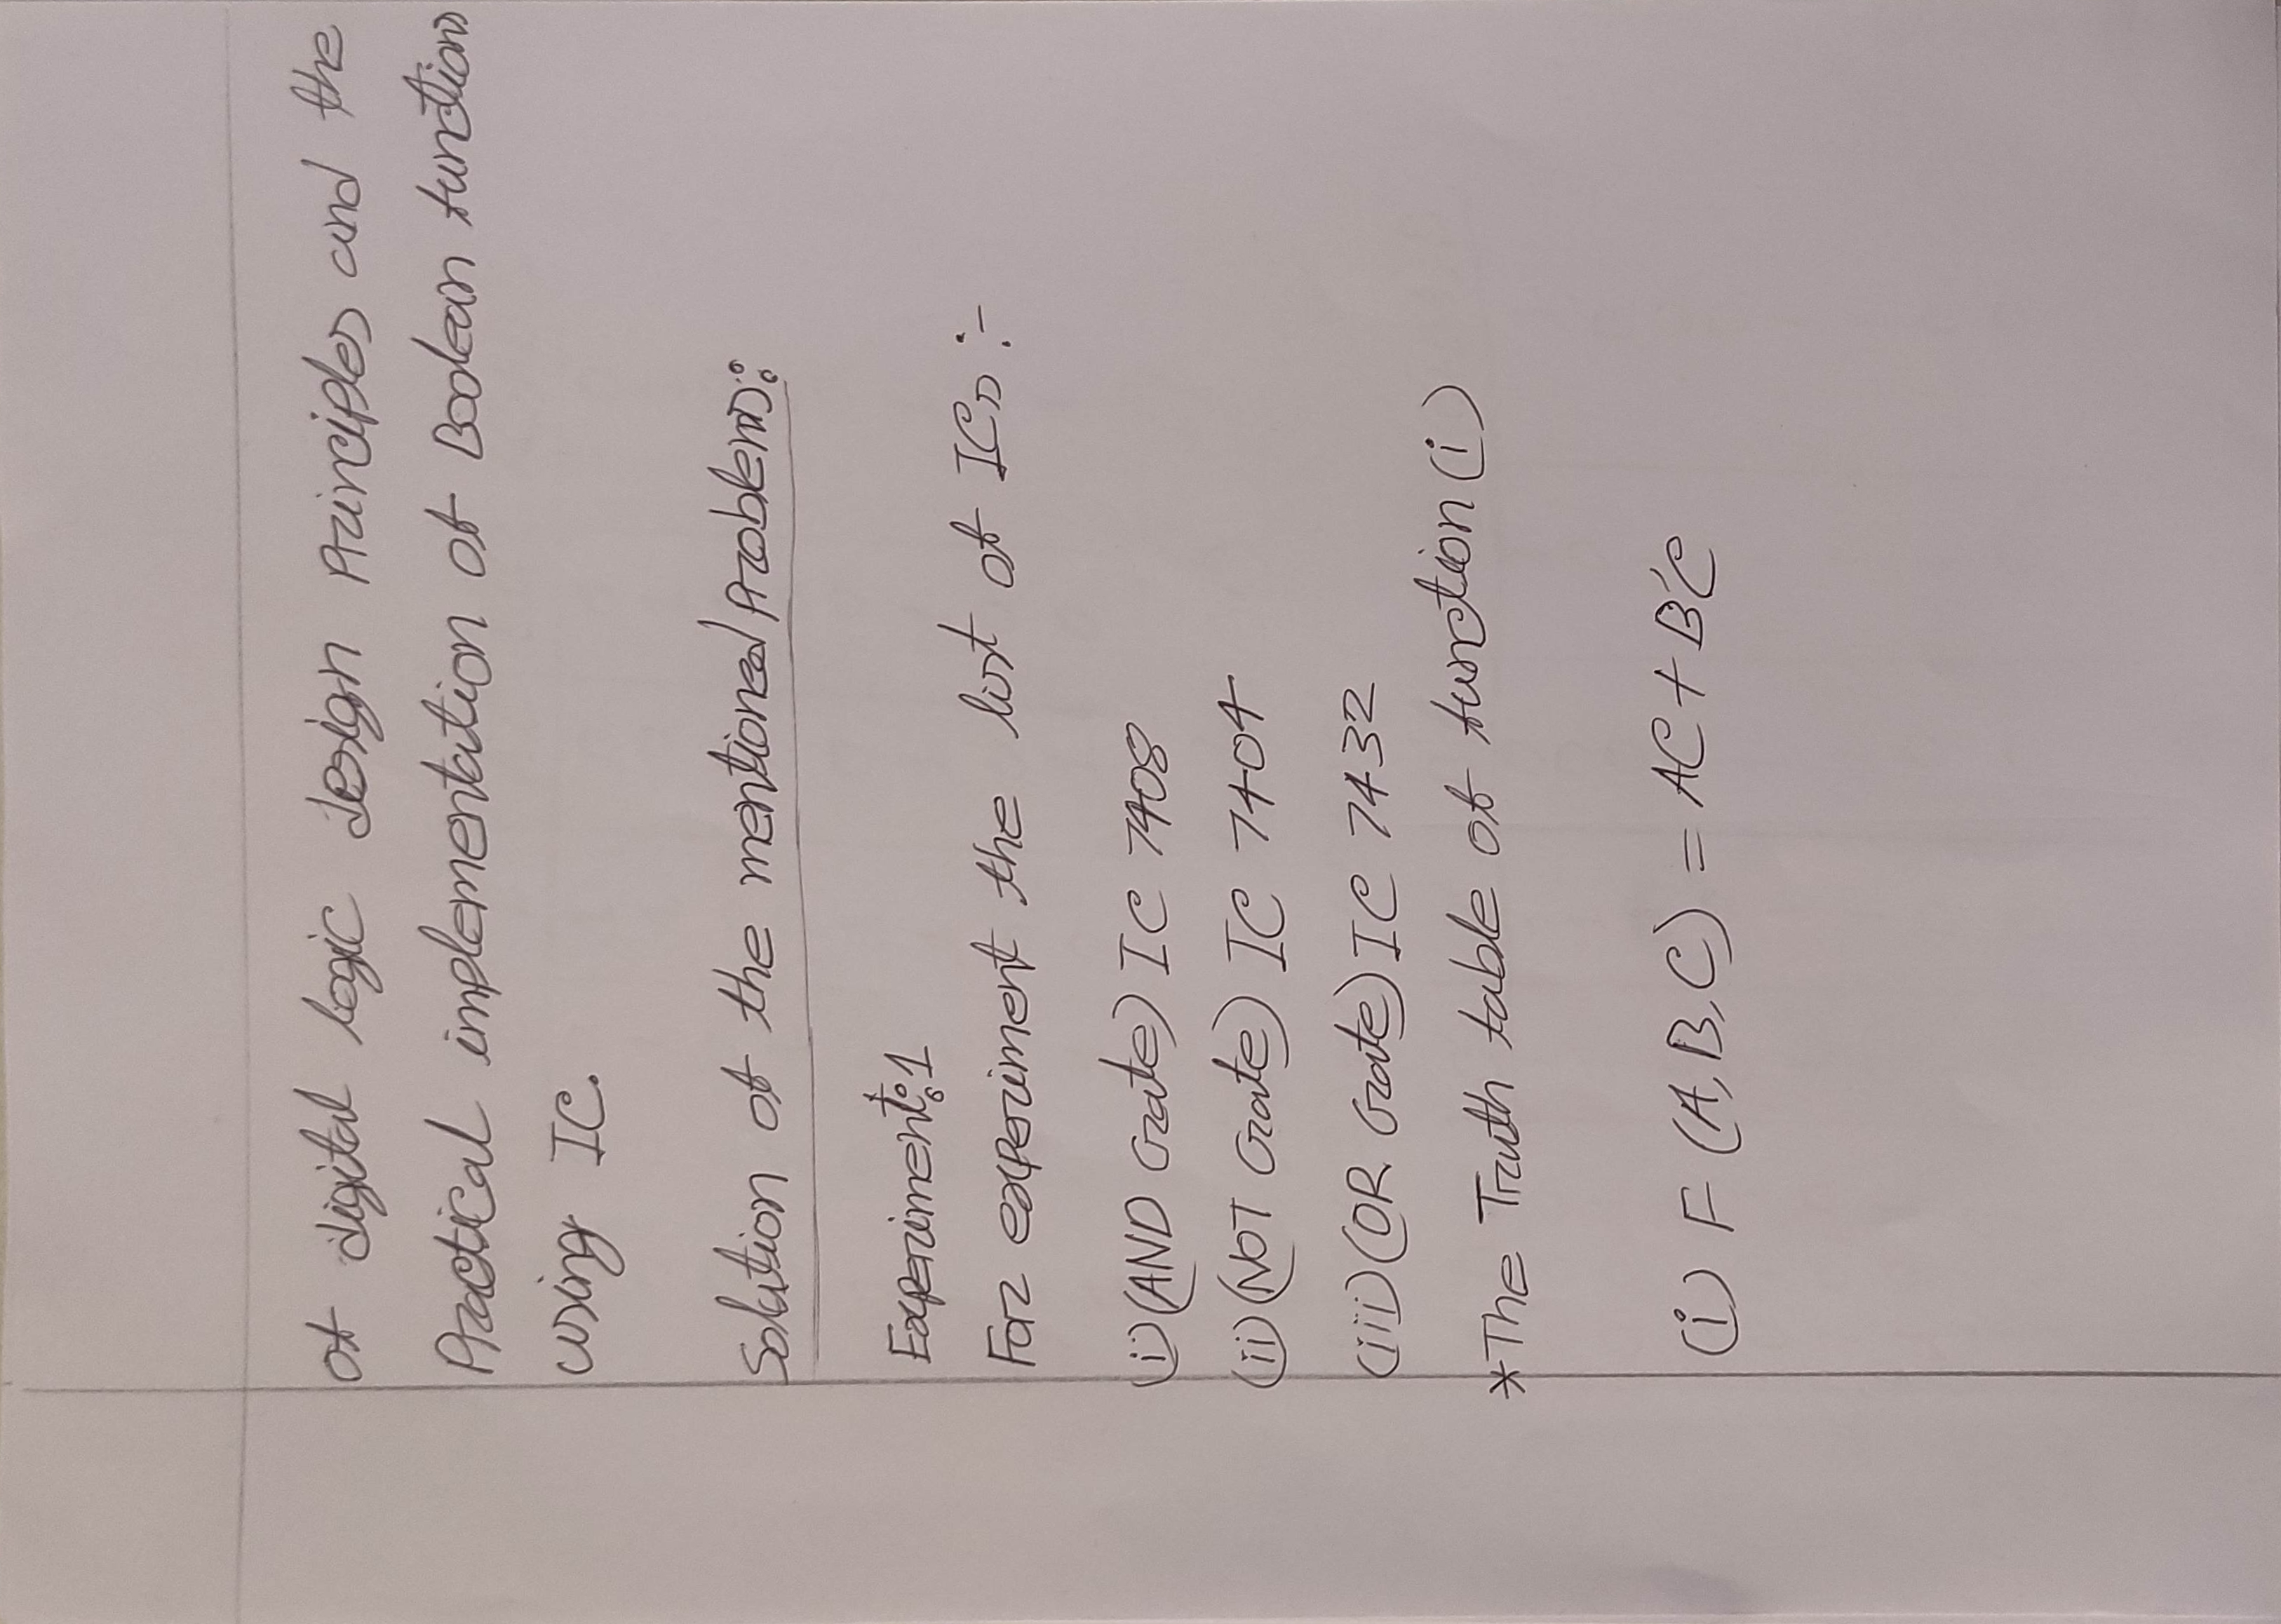 of digital logic design principles and the
Practical implementation of Boolean functions
using IC.
Solution of the mentioned problems:
Experiment:1
For experiment the list of ICs :-
(i) (AND Gate) IC 7408
(ii) (NOT Gate) IC 7404
(iii) (OR Gate) IC 7432
*The Truth table of function (i)
(i) F (A,B,C) = AC + B'C